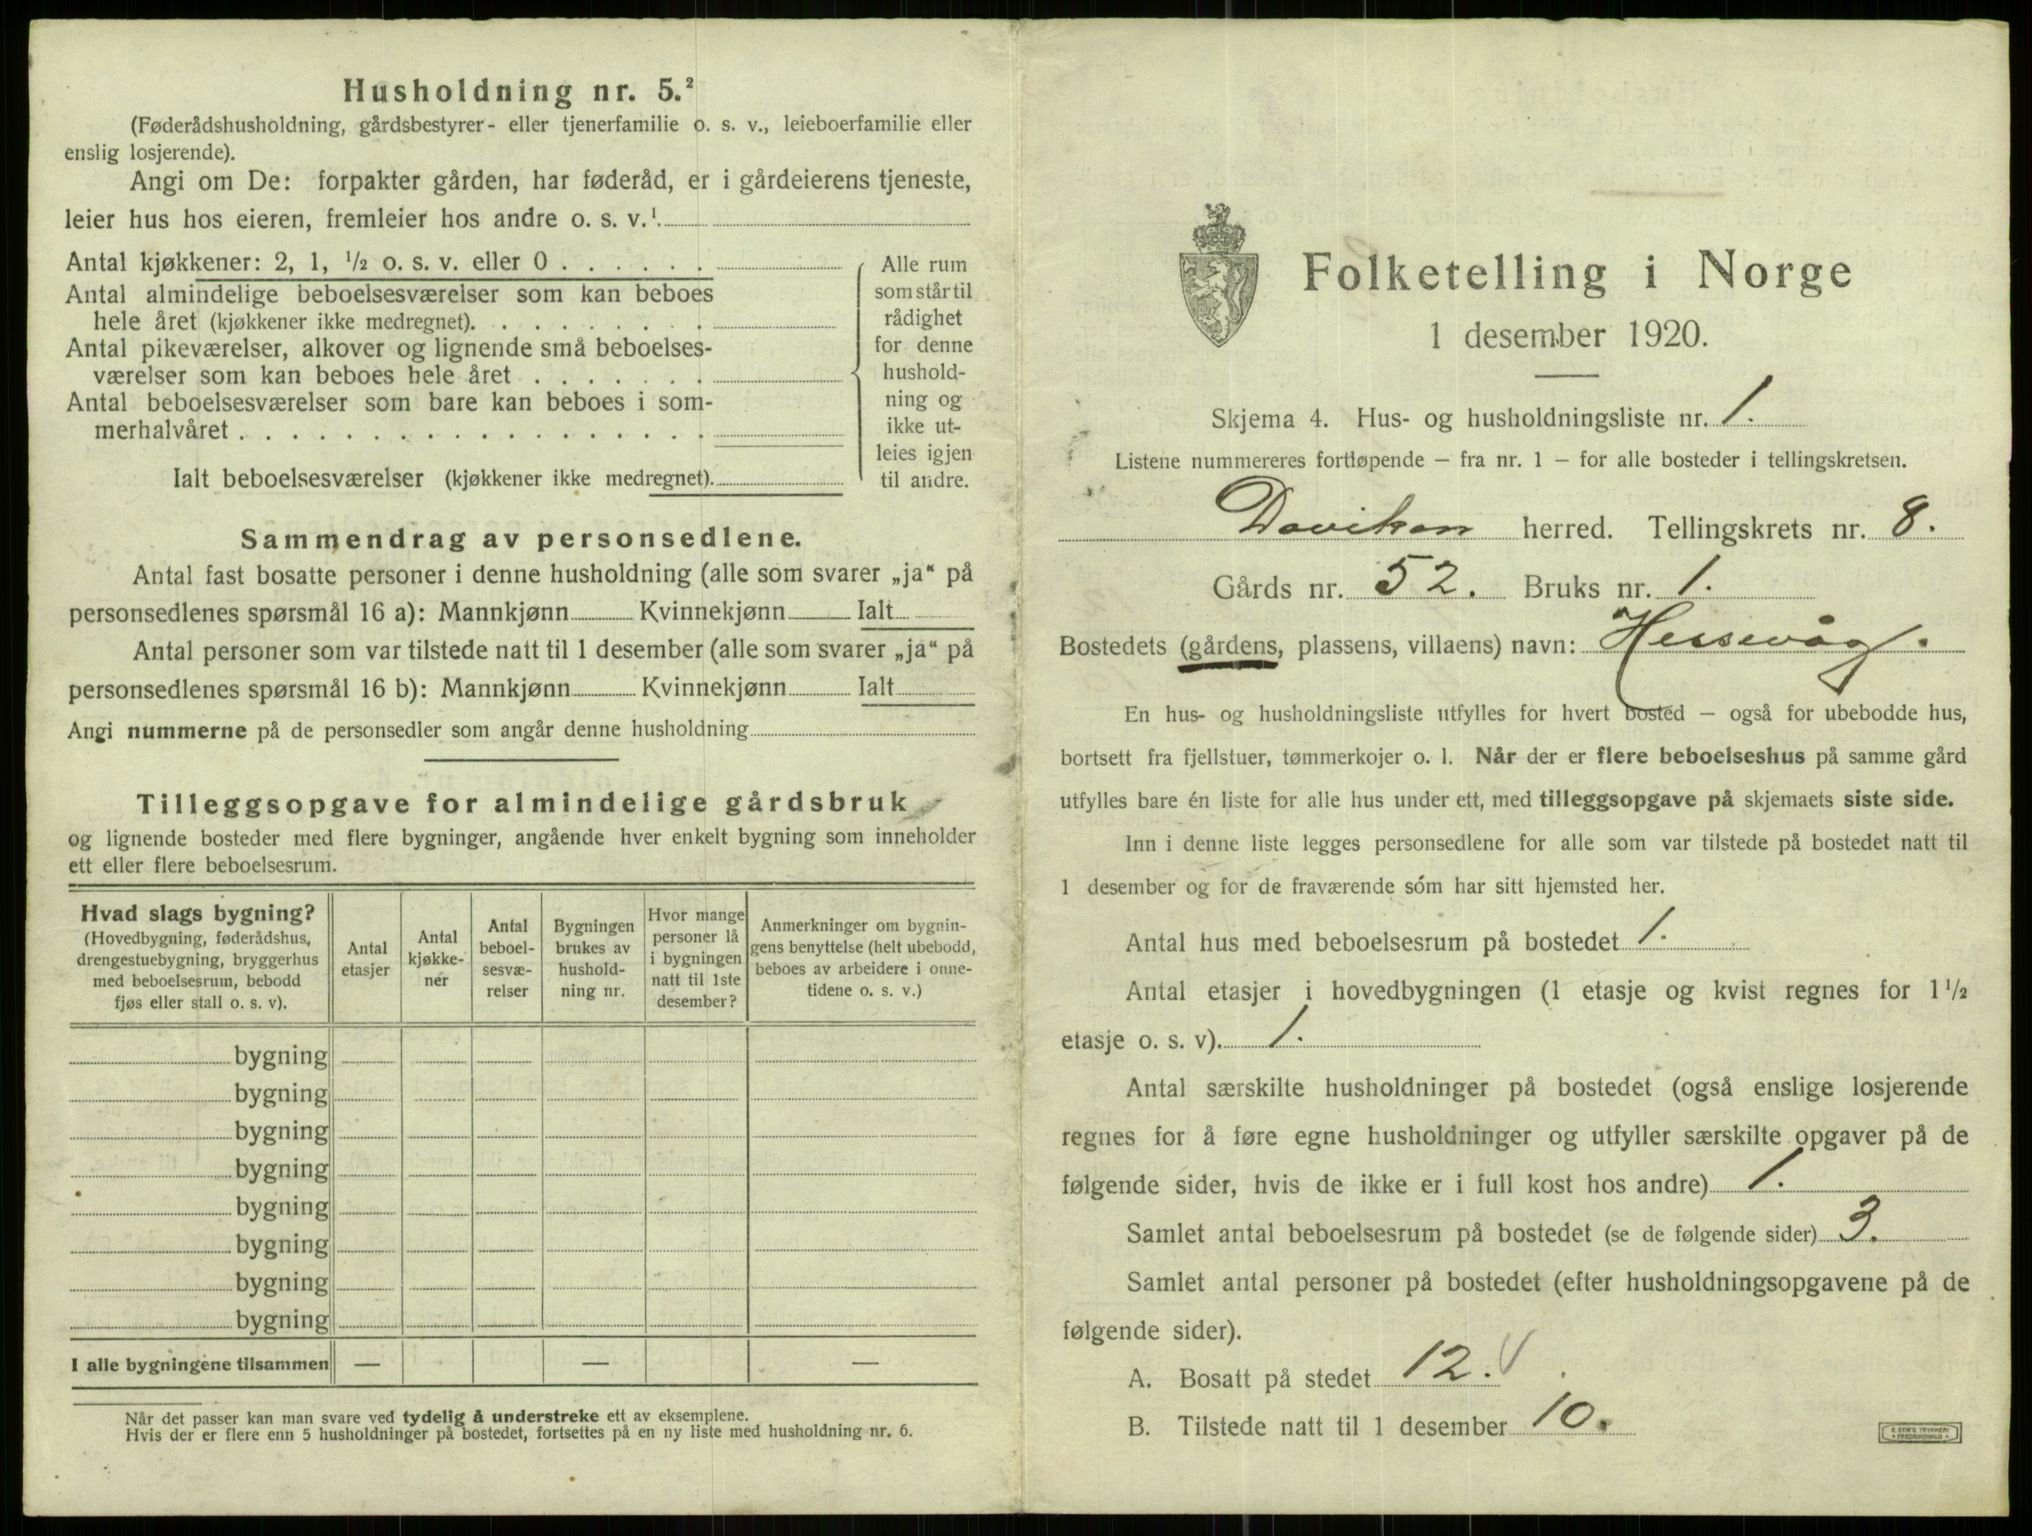 Husholdning nr. 5.²
(Føderådshusholdning, gårdsbestyrer- eller tjenerfamilie o. s. v., leieboerfamilie eller
enslig losjerende).
Angi om De: forpakter gården, har føderåd, er i gårdeierens tjeneste,
leier hus hos eieren, fremleier hos andre o. s. v.¹
Antal kjøkkener: 2, 1, ½ o. s. v. eller 0 . . . . . .
Antal almindelige beboelsesværelser som kan beboes
hele året (kjøkkener ikke medregnet). . . . . . . . .
Antal pikeværelser, alkover og lignende små beboelses-
værelser som kan beboes hele året . . . . . . .
Antal beboelsesværelser som bare kan beboes i som-
merhalvåret . . . . . . . . . . . . . . . . . .
Ialt beboelsesværelser (kjøkkener ikke medregnet).
Alle rum
som står til
rådighet
for denne
hushold-
ning og
ikke ut-
leies igjen
til andre.
Sammendrag av personsedlene.
Antal fast bosatte personer i denne husholdning (alle som svarer „ja“ på
personsedlenes spørsmål 16 a): Mannkjønn Kvinnekjønn Ialt
Antal personer som var tilstede natt til 1 desember (alle som svarer „ja“ på
personsedlenes spørsmål 16 b): Mannkjønn Kvinnekjønn Ialt
Angi nummerne på de personsedler som angår denne husholdning
Tilleggsopgave for almindelige gårdsbruk
og lignende bosteder med flere bygninger, angående hver enkelt bygning som inneholder
ett eller flere beboelsesrum.
Hvad slags bygning?
(Hovedbygning, føderådshus,
drengestuebygning, bryggerhus
med beboelsesrum, bebodd
fjøs eller stall o. s. v).
Antal
etasjer
Antal
kjøkke-
ner
Antal
beboel-
sesvæ-
relser
Bygningen
brukes av
hushold-
ning nr.
Hvor mange
personer lå
i bygningen
natt til 1ste
desember?
Anmerkninger om bygnin-
gens benyttelse (helt ubebodd,
beboes av arbeidere i onne-
tidene o. s. v.)
bygning
bygning
bygning
bygning
bygning
bygning
bygning
bygning
I alle bygningene tilsammen — — —
Når det passer kan man svare ved tydelig å understreke ett av eksemplene.
Hvis der er flere enn 5 husholdninger på bostedet, fortsettes på en ny liste med husholdning nr. 6.
Folketelling i Norge
1 desember 1920.
Skjema 4. Hus- og husholdningsliste nr. 1.
Listene nummereres fortløpende – fra nr. 1 – for alle bosteder i tellingskretsen.
Daviken herred. Tellingskrets nr. 8.
Gårds nr. 52. Bruks nr. 1.
Bostedets (gårdens, plassens, villaens) navn: Hessevåg.
En hus- og husholdningsliste utfylles for hvert bosted – også for ubebodde hus,
bortsett fra fjellstuer, tømmerkojer o. l. Når der er flere beboelseshus på samme gård
utfylles bare én liste for alle hus under ett, med tilleggsopgave på skjemaets siste side.
Inn i denne liste legges personsedlene for alle som var tilstede på bostedet natt til
1 desember og for de fraværende som har sitt hjemsted her.
Antal hus med beboelsesrum på bostedet 1.
Antal etasjer i hovedbygningen (1 etasje og kvist regnes for 1½
etasje o. s. v). 1.
Antal særskilte husholdninger på bostedet (også enslige losjerende
regnes for å føre egne husholdninger og utfyller særskilte opgaver på de
følgende sider, hvis de ikke er i full kost hos andre) 1.
Samlet antal beboelsesrum på bostedet (se de følgende sider) 3.
Samlet antal personer på bostedet (efter husholdningsopgavene på de
følgende sider).
A. Bosatt på stedet 12. V
B. Tilstede natt til 1 desember 10.
E. SEM'S TRYKKERI
FREDRIKSHALD